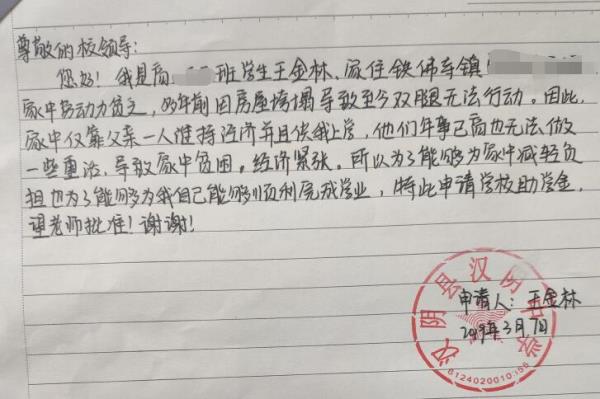 尊敬的校领导:
您好!我是高 班学生王金林、家住铁佛寺镇
家中劳动力贫乏,08年前因房屋垮塌导致至今双腿无法行动。因此,
家中仅靠父亲一人维持经济并且供我上学,他们年事已高也无法做
一些重活、导致家中贫困。经济紧张。所以为了能够为家中减轻负
担也为了能够为我自己能够顺利完成学业,特此申请学校助学金,
望老师批准!谢谢!
申请人:王金林
2019年3月7日
汉阴县汉阴中学
6124020010156